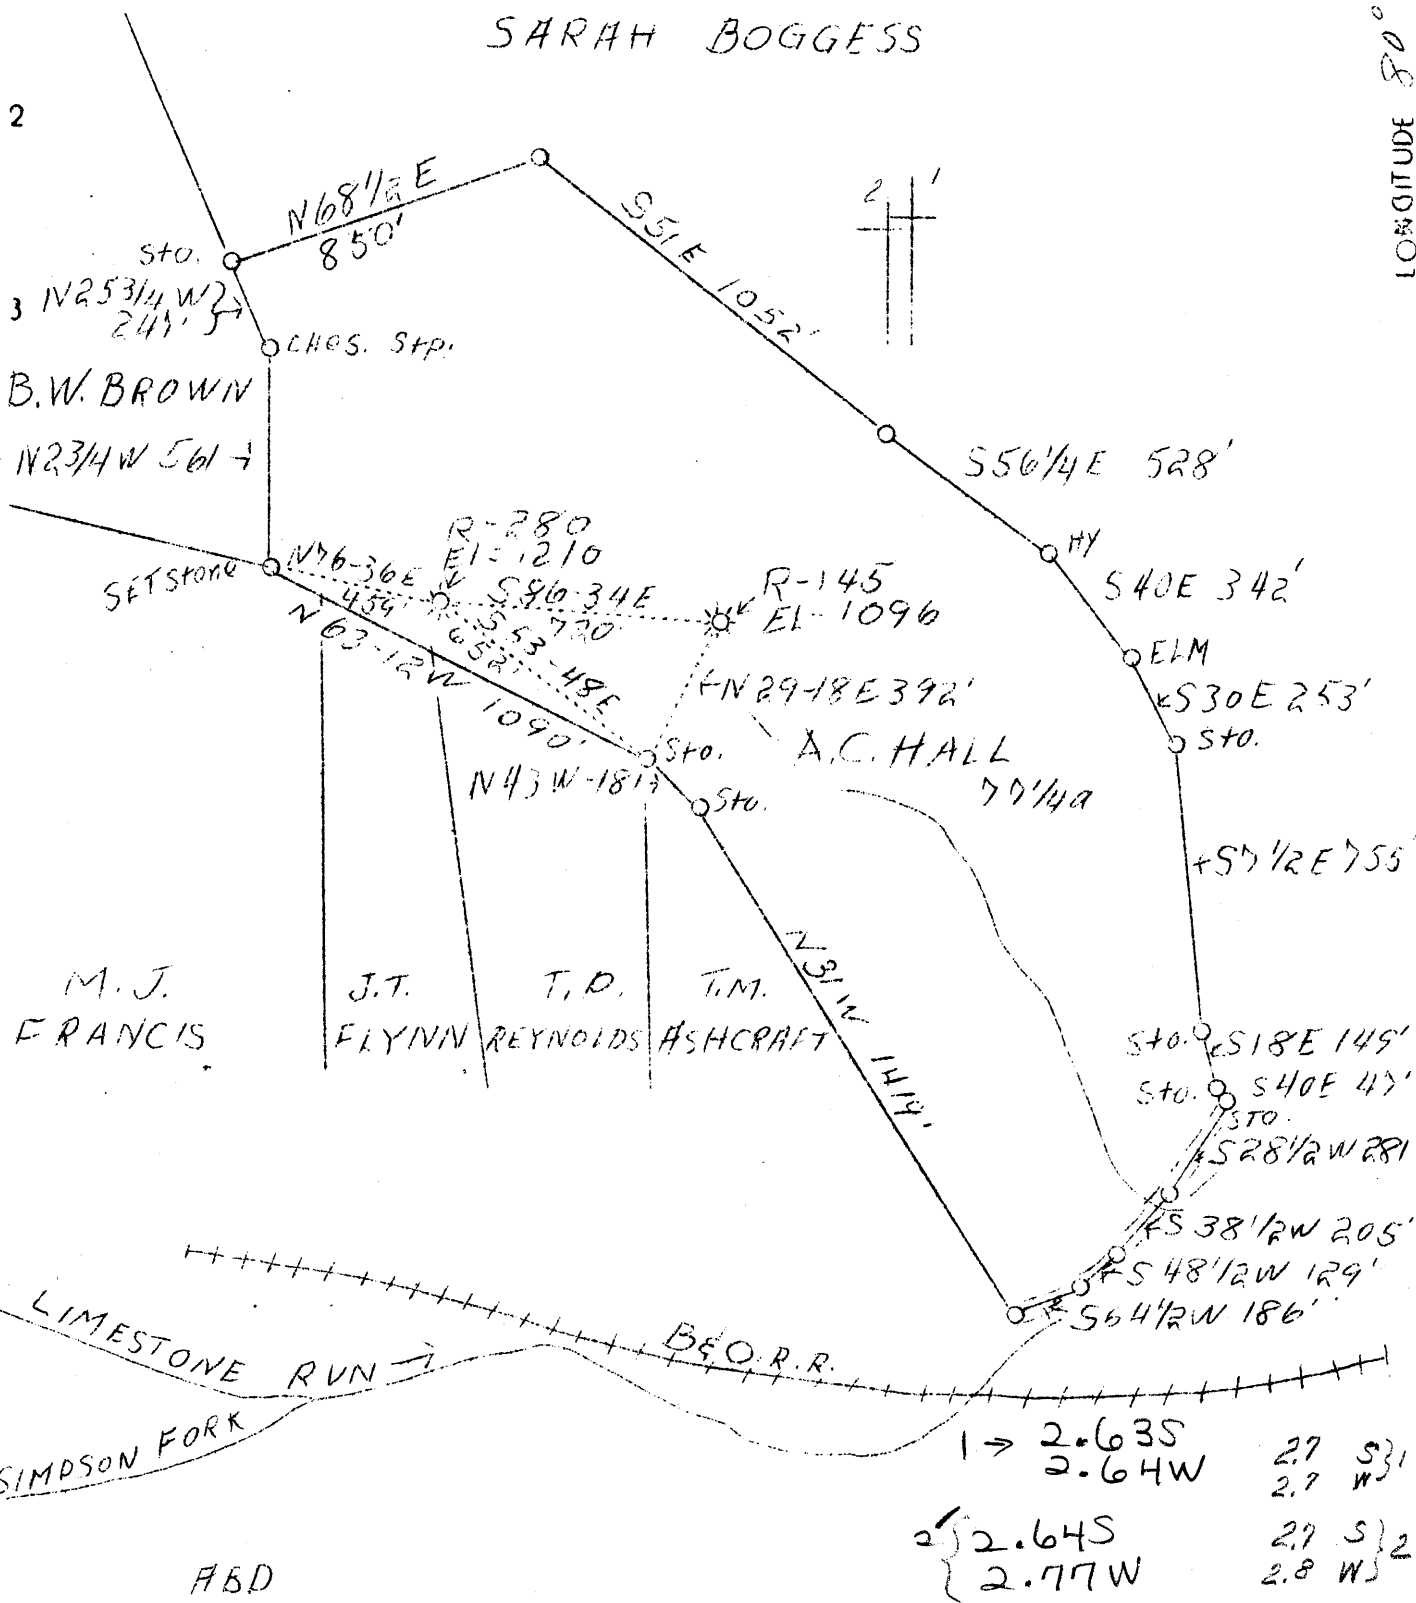 SARAH BOGGESS
LONGITUDE 80°
2
N68 1/2 E
850'
2 1
S51E 1052'
Sto.
3 N25 3/4 W }
247'
CHES. Stp.
B.W. BROWN
N2 3/4 W 561
S56 1/4 E 528'
HY
S40E 342'
R-280
El=1210
SET Stone
N76-36E
459'
S86-34E
720'
R-145
EL-1096
ELM
N63-12W 1090'
S53-48E
652'
N29-18E 392'
S30E 253'
Sto.
Sto.
A.C. HALL
77 1/4a
N43W-181
Sto.
S7 1/2 E 755'
N31W 1419'
M.J.
FRANCIS
J.T.
FLYNN
T.D.
REYNOLDS
T.M.
ASHCRAFT
Sto.
S18E 149'
Sto.
S40E 47'
STO.
S28 1/2 W 281
S38 1/2 W 205'
S48 1/2 W 129'
S64 1/2 W 186'
LIMESTONE RUN
B&O R.R.
SIMPSON FORK
1 → 2.63S
2.64W
2.7 S } 1
2.7 W
2 { 2.64S
2.77W
2.7 S } 2
2.8 W
ABD